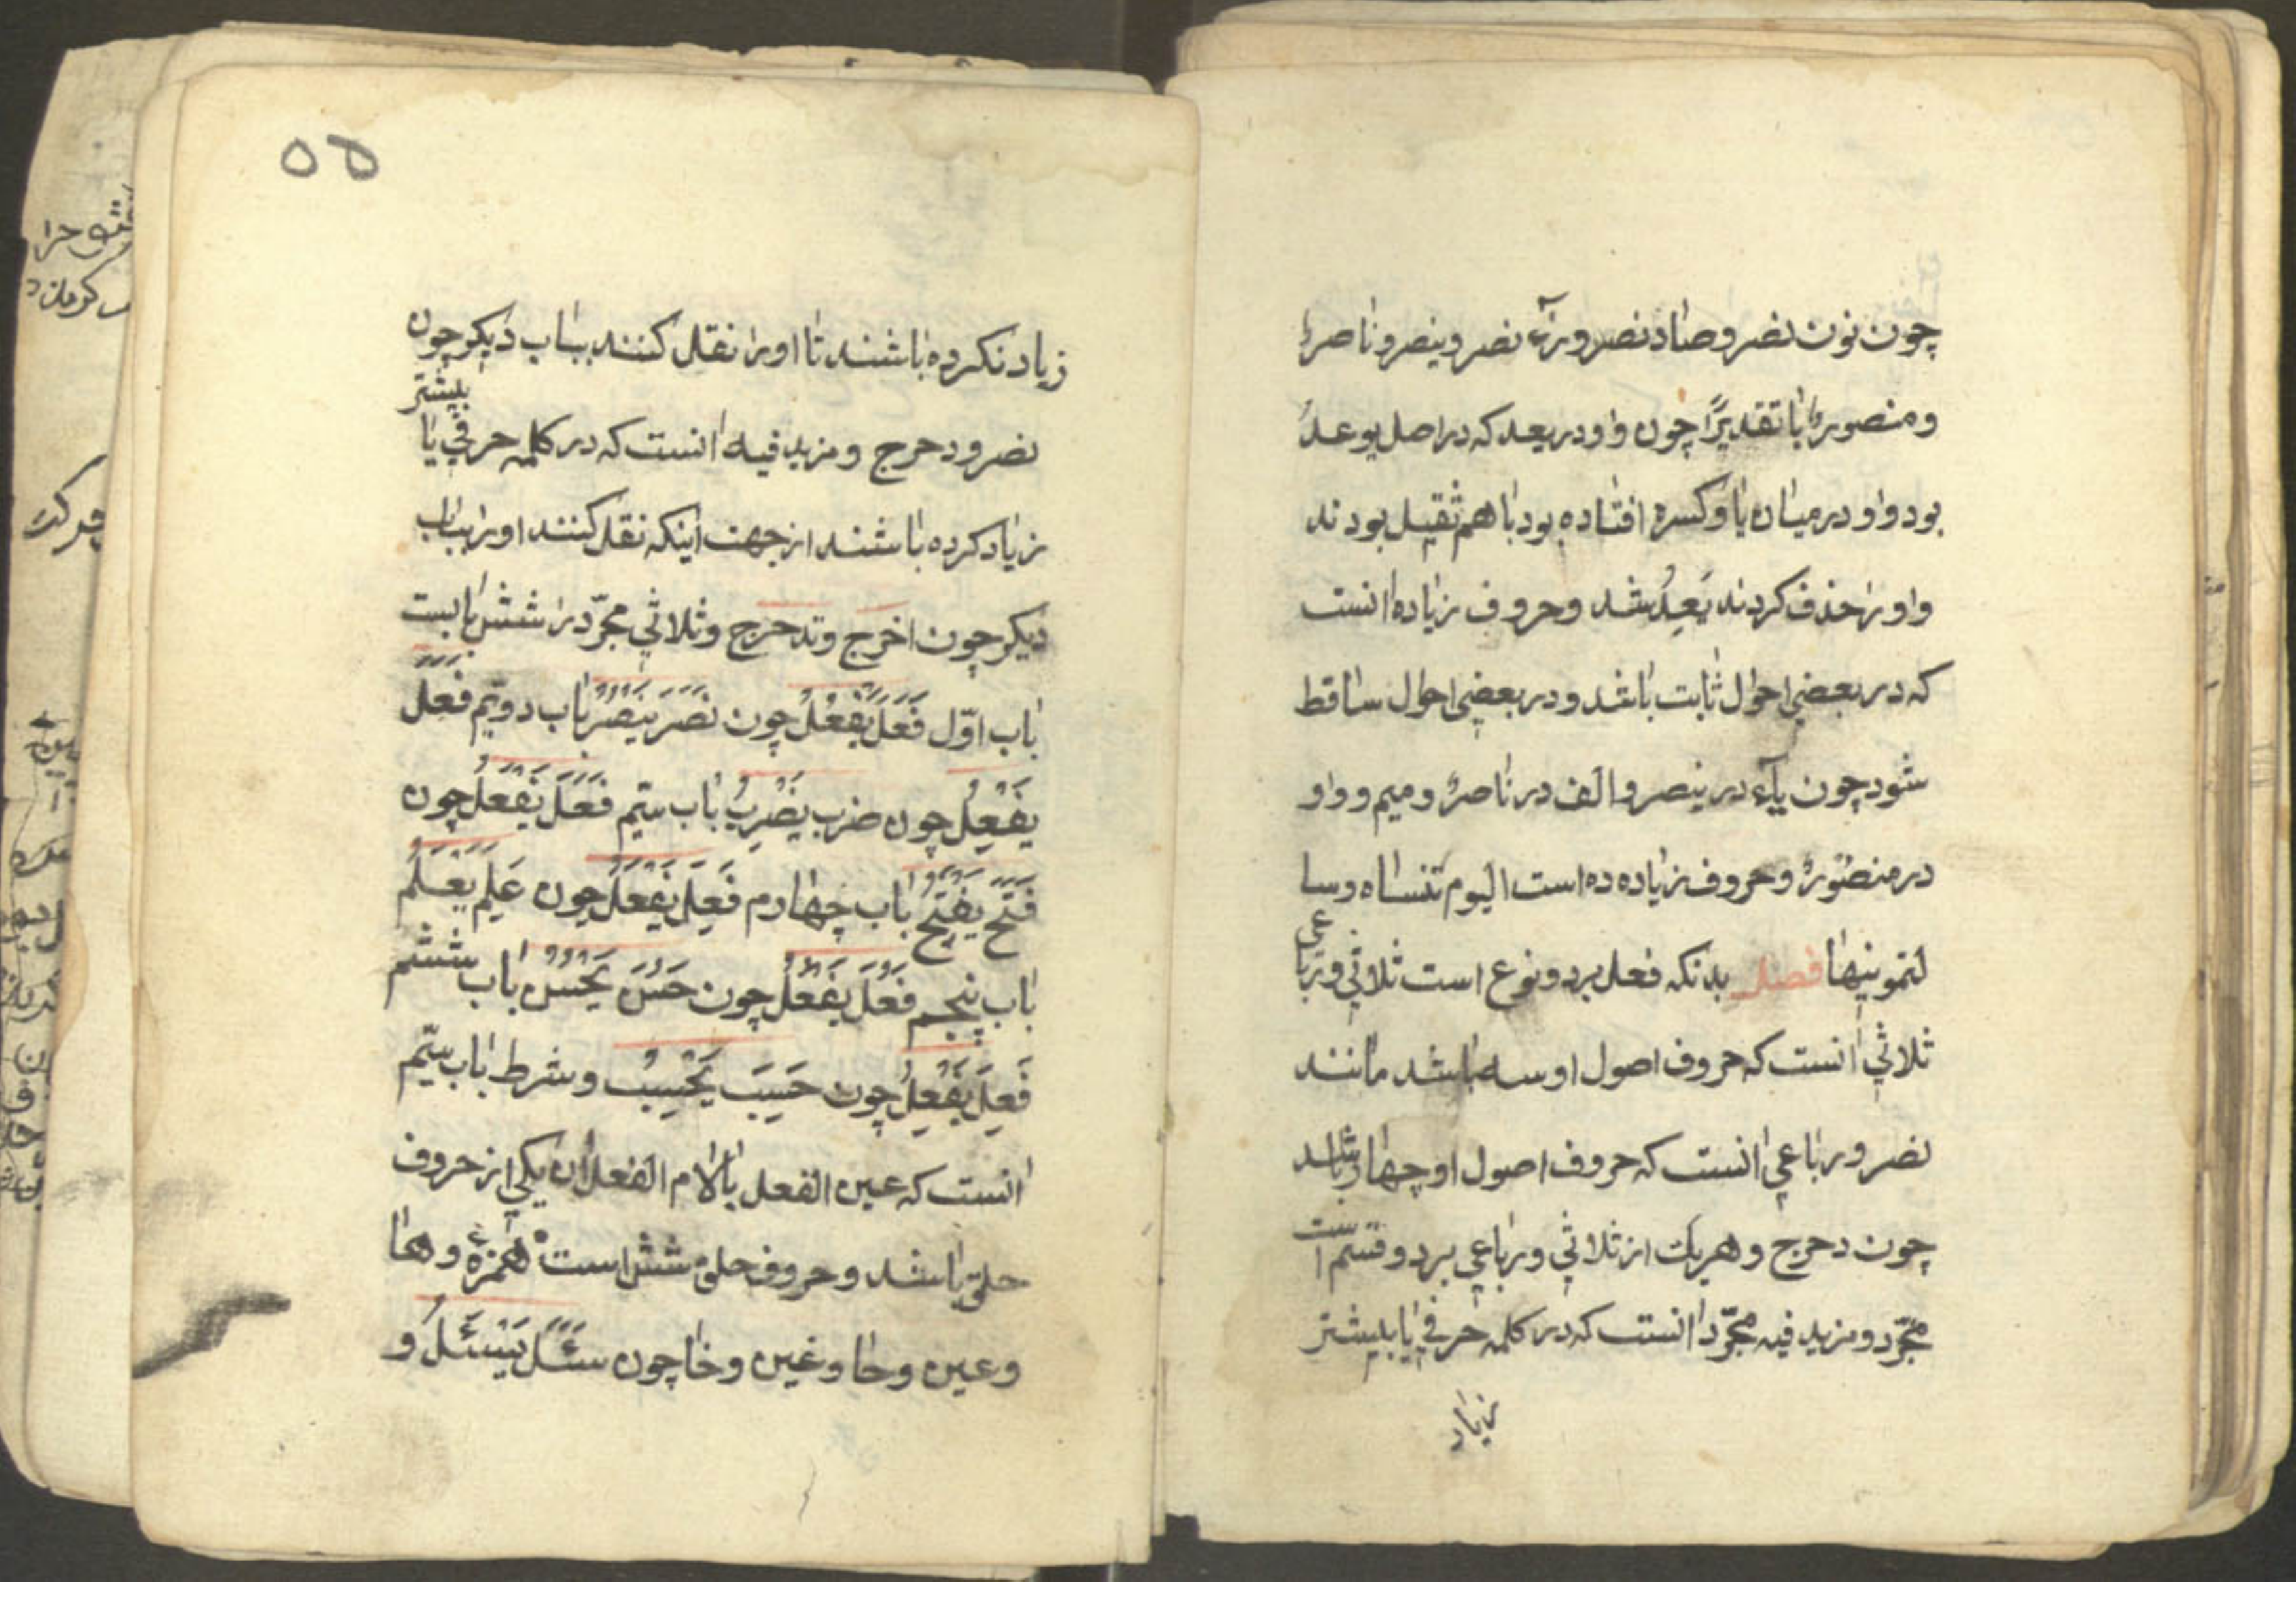 چون نون نصر و صاد نصر و رآء نصر و ینصر و ناصرٌا
و منصورٌا یا تقدیرًا چون واو در یعد که در اصل یوعدُ
بود واو در میان یا و کسره افتاده بود با هم ثقیل بودند
واو را حذف کردند یَعِدُ شد و حروف زیاده انست
که در بعضی احوال ثابت باشد و در بعضی احوال ساقط
شود چون یآء در ینصر و الف در ناصرٌ و میم و واو
در منصورٌ و حروف زیاده ده است الیوم تنساه و سا
لتمونیها فصل بدنکه فعل بر دو نوع است ثلاثی و رباعی
ثلاثی انست که حروف اصول او سه باشد مانند
نصر و رباعی انست که حروف اصول او چهار باشد
چون دحرج و هریک از ثلاثی و رباعی بر دو قسم است
مجرّد و مزید فیه مجرّد انست که در کلمه حرفی یا بیشتر
زیاد
۵۵
زیاد نکرده باشند تا او را نقل کنند بباب دیکر چون
نصر و دحرج و مزید فیه انست که در کلمه حرفی یا بیشتر
زیاد کرده باشند از جهت اینکه نقل کنند او را بباب
دیکر چون اخرج و تدحرج و ثلاثی مجرّد را شش بابست
باب اوّل فَعَلَ یَفْعُلُ چون نَصَرَ یَنْصُرُ باب دویّم فَعَلَ
یَفْعِلُ چون ضرب یَضْرِبُ باب سیّم فَعَلَ یَفْعَلُ چون
فَتَحَ یَفْتَحُ باب چهارم فَعِلَ یَفْعَلُ چون عَلِمَ یَعْلَمُ
باب پنجم فَعُلَ یَفْعُلُ چون حَسُنَ یَحْسُنُ باب ششم
فَعِلَ یَفْعِلُ چون حَسِبَ یَحْسِبُ و شرط باب سیّم
انست که عین الفعل یا لام الفعل ان یکی از حروف
حلق باشد و حروف حلق شش است همزهٔ و ها
و عین و حا و غین و خا چون سَئَلَ یَسْئَلُ و